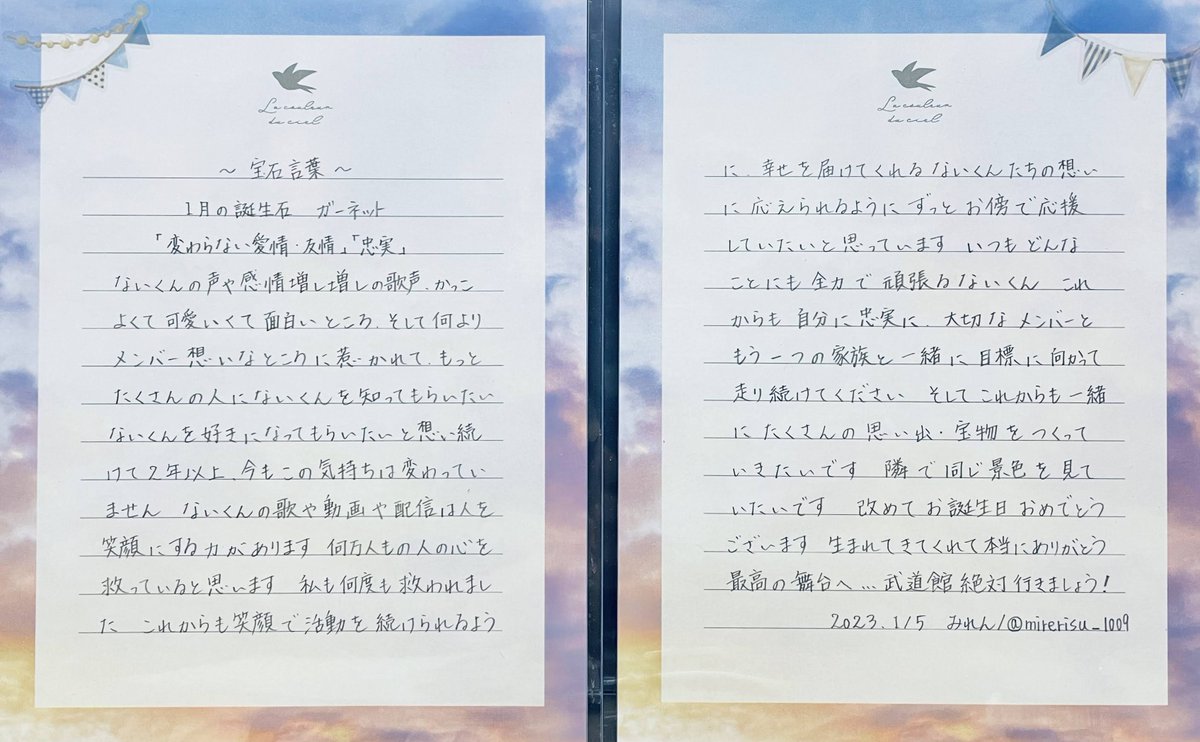 La couleur
du ciel
～ 宝石言葉 ～
1月の誕生石 ガーネット
「変わらない愛情・友情」「忠実」
ないくんの声や感情増し増しの歌声、かっこ
よくて可愛いくて面白いところ、そして何より
メンバー想いなところに惹かれて、もっと
たくさんの人にないくんを知ってもらいたい
ないくんを好きになってもらいたいと想い続
けて2年以上、今もこの気持ちは変わってい
ません ないくんの歌や動画や配信は人を
笑顔にする力があります 何万人もの人の心を
救っていると思います 私も何度も救われまし
た これからも笑顔で活動を続けられるよう
La couleur
du ciel
に、幸せを届けてくれるないくんたちの想い
に応えられるようにずっとお傍で応援
していたいと思っています いつもどんな
ことにも全力で頑張るないくん これ
からも自分に忠実に、大切なメンバーと
もう一つの家族と一緒に目標に向かって
走り続けてください そしてこれからも一緒
にたくさんの思い出・宝物をつくって
いきたいです 隣で同じ景色を見て
いたいです 改めてお誕生日おめでとう
ございます 生まれてきてくれて本当にありがとう
最高の舞台へ…武道館絶対行きましょう!
2023.1/5 みれん/@mirerisu_1009